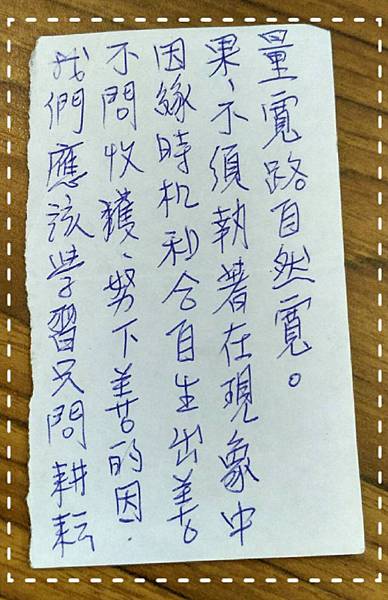 我們應該学習只問耕耘
不問收獲、努下善的因.
因緣時机和合自生出善
果、不須執著在現象中
量寬路自然寬。